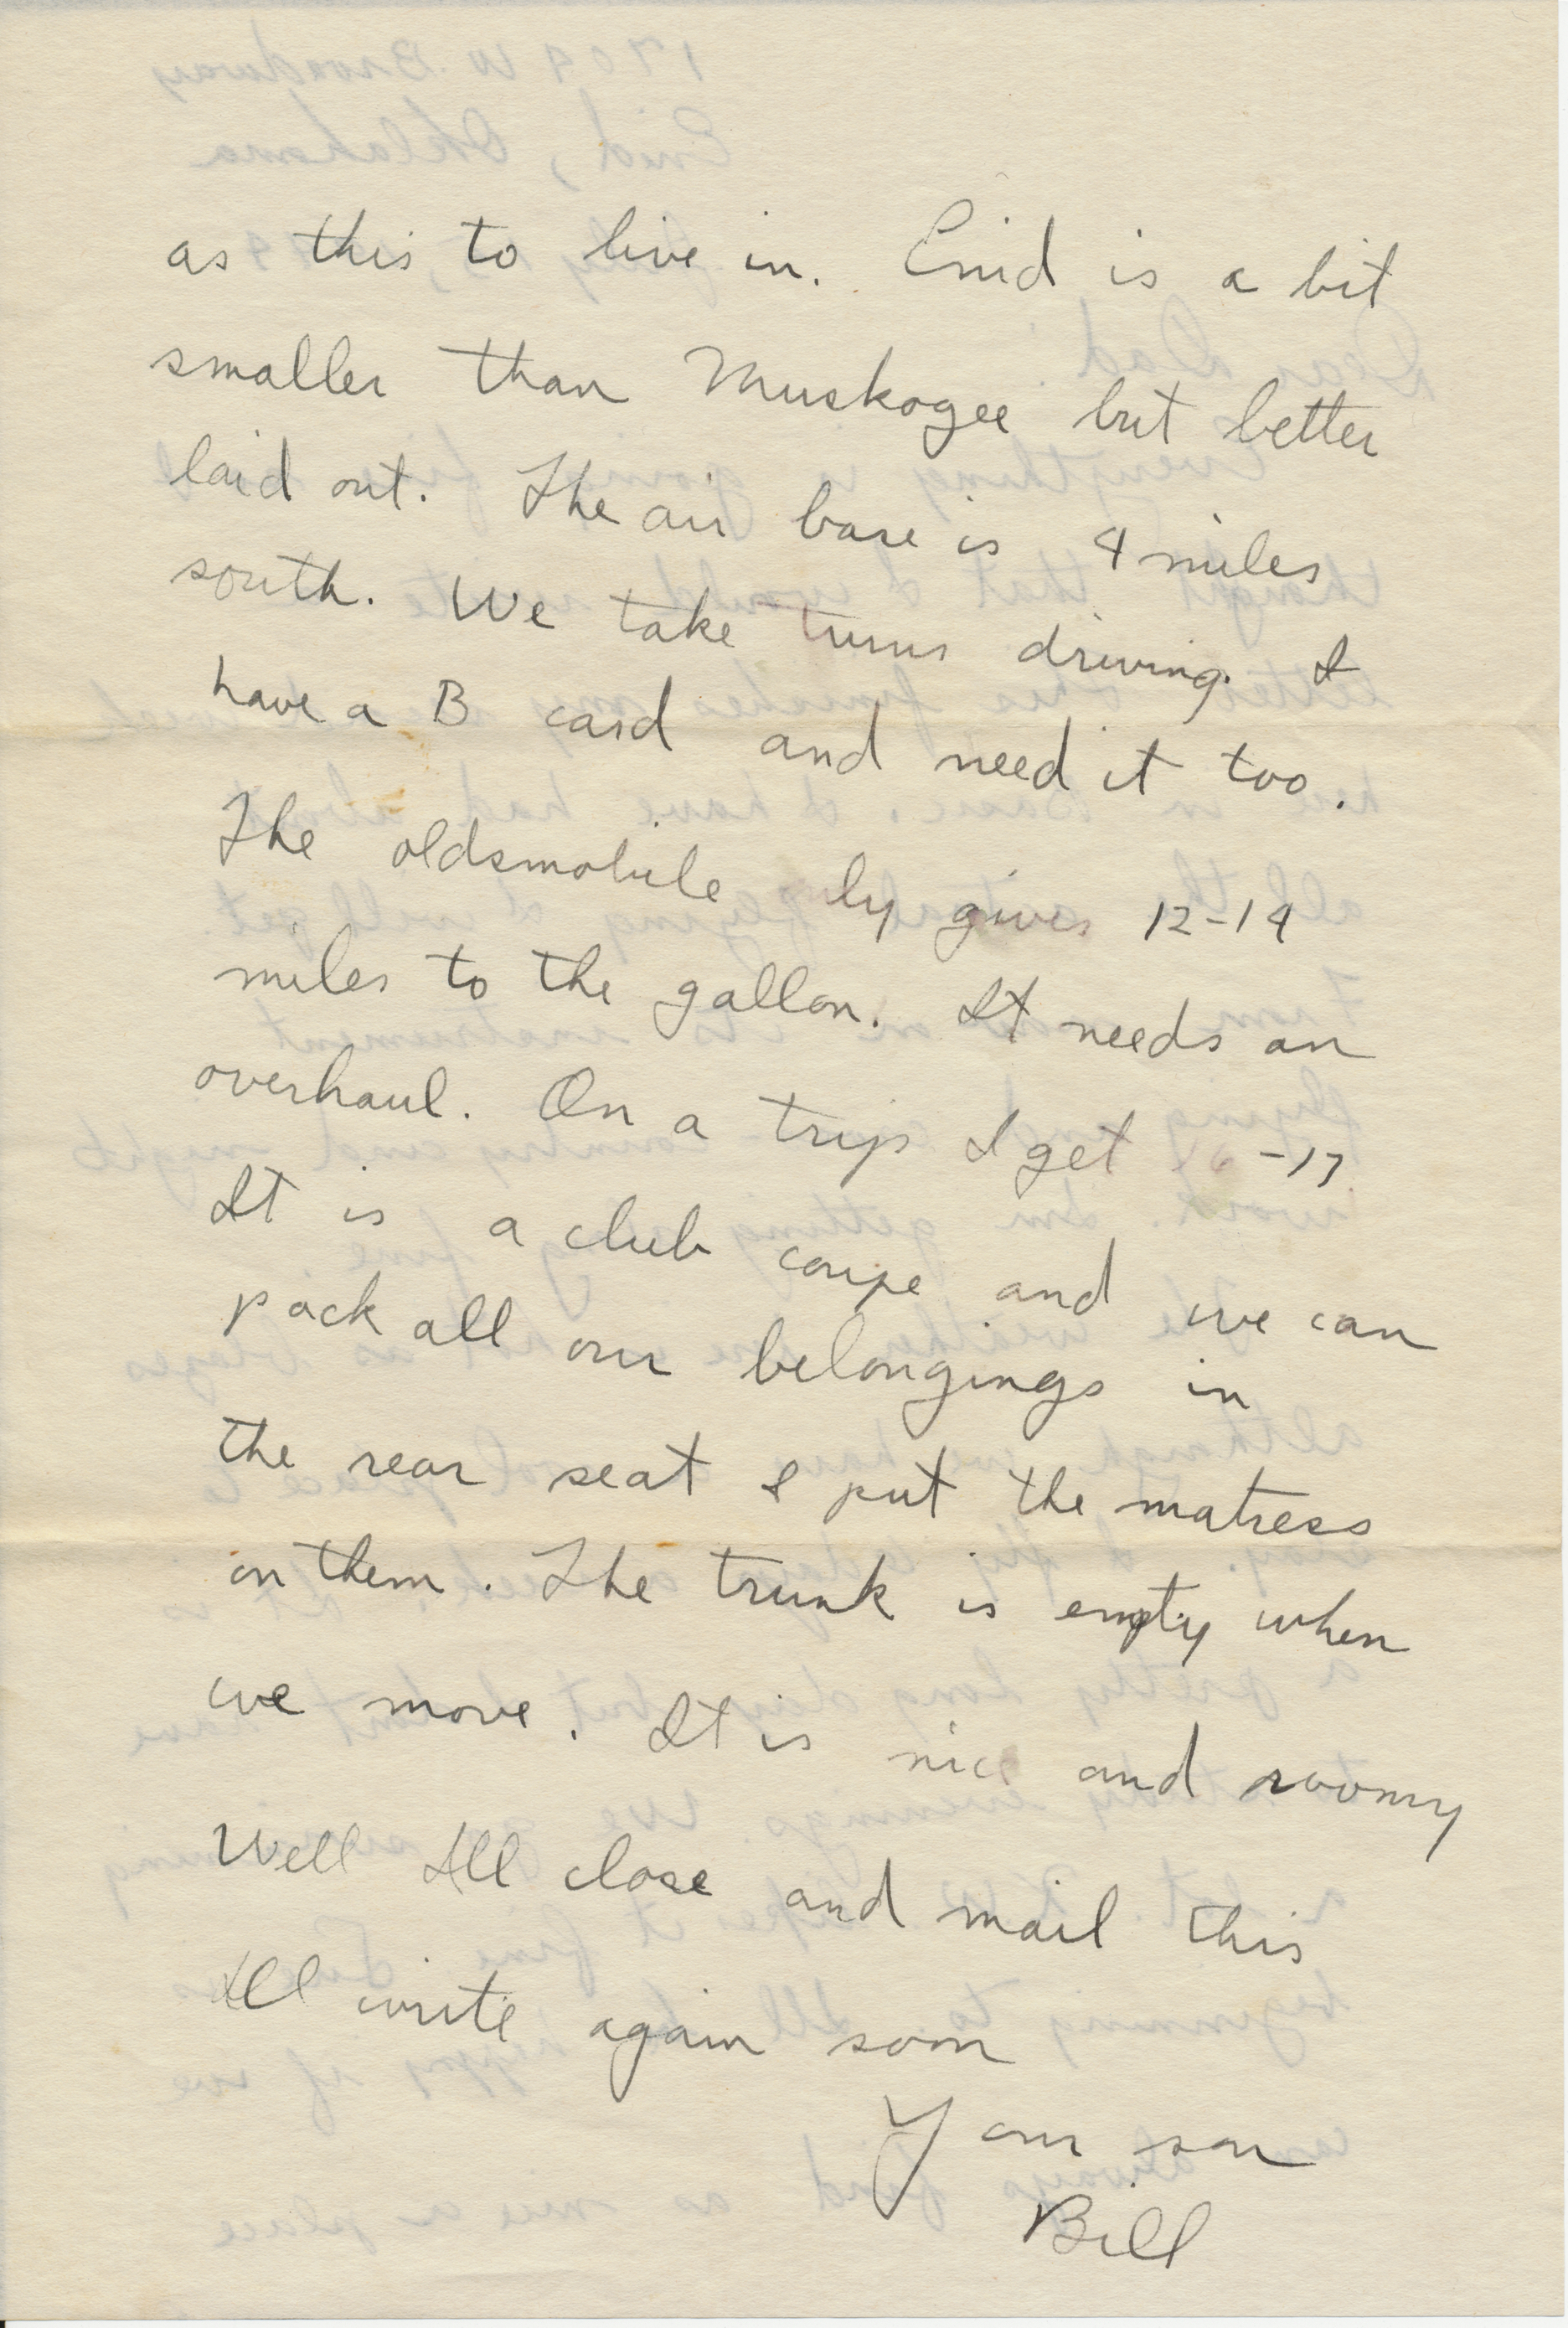 as this to live in. Enid is a bit
smaller than Muskogee but better
laid out. The air base is 4 miles
south. We take turns driving. I
have a B card and need it too.
The oldsmobile ly gives 12-14
miles to the gallon. It needs an
overhaul. On a trip I get 16-17
It is a club coupe and we can
pack all our belongings in
the rear seat & put the matress
on them. The trunk is empty when
we move. It is nice and roomy
Well Ill close and mail this
Ill write again soon
Your son
Bill